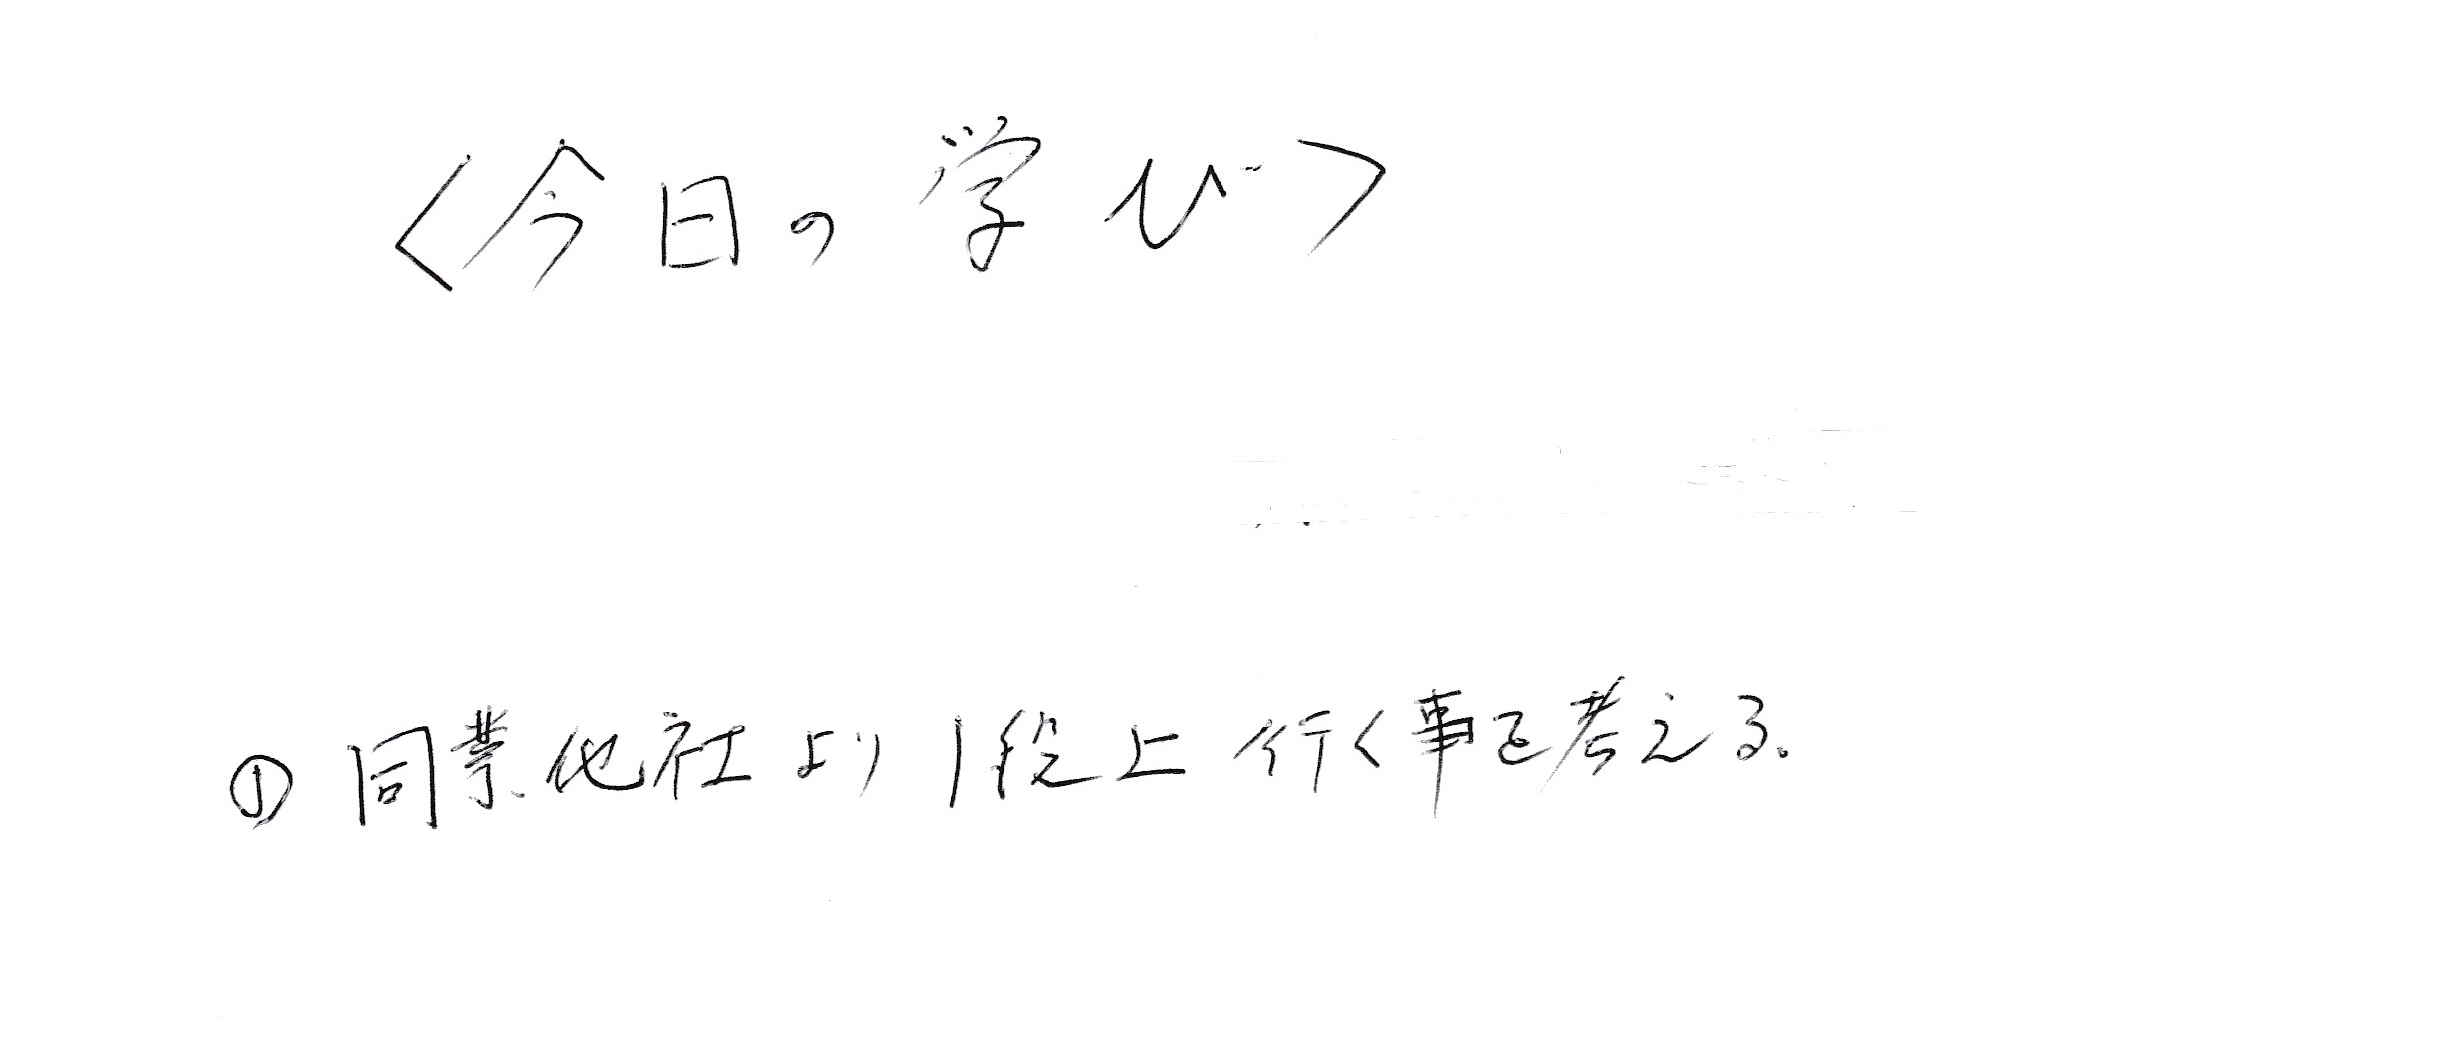 〈今日の学び〉
① 同業他社より1段上行く事を考える。